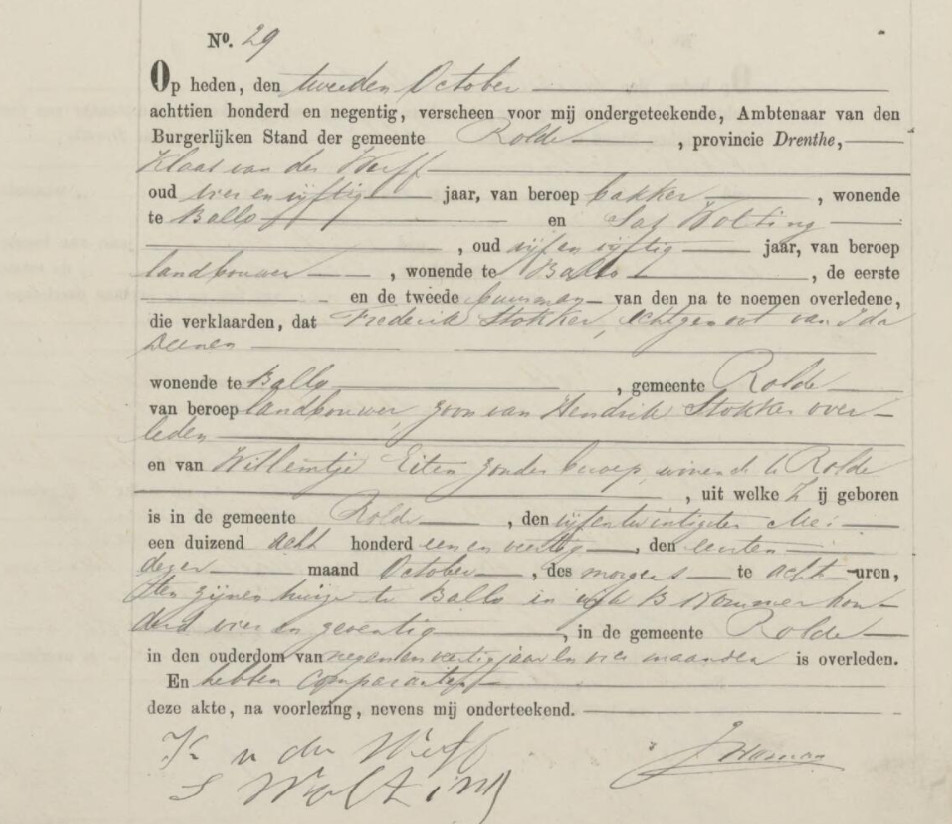 No. 29
Op heden, den tweeden October
achttien honderd en negentig, verscheen voor mij ondergeteekende, Ambtenaar van den
Burgerlijken Stand der gemeente Rolde, provincie Drenthe,
Klaas van der Werff
oud vier en vijftig jaar, van beroep bakker, wonende
te Ballo en Jas Wolting
, oud vijf en vijftig jaar, van beroep
landbouwer, wonende te Ballo, de eerste
en de tweede buurman van den na te noemen overledene,
die verklaarden, dat Frederik Stokker, echtgenoot van Ida
Deenen
wonende te Ballo, gemeente Rolde
van beroep landbouwer, zoon van Hendrik Stokker over-
leden
en van Willemtje Eiten zonder beroep, wonende te Rolde
, uit welke Zij geboren
is in de gemeente Rolde, den vijfentwintigsten Mei
een duizend acht honderd een en veertig, den eersten
dezer maand October, des morgens te acht uren,
ten zijnen huize te Ballo in wijk B Nommer hon-
derd vier en zeventig, in de gemeente Rolde
in den ouderdom van negen en veertig jaar en vier maanden is overleden.
En hebben comparanten
deze akte, na voorlezing, nevens mij onderteekend.
K v der Werff
S Wolting